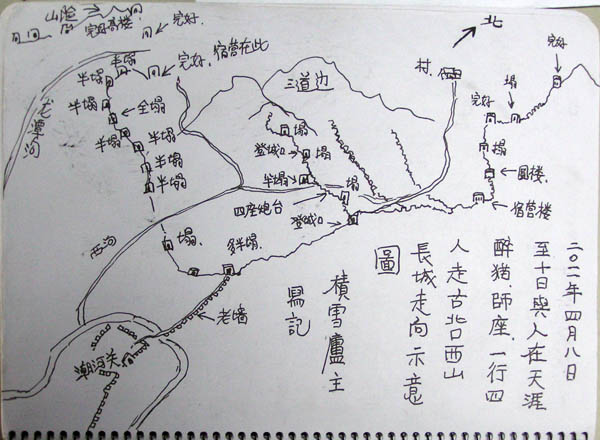 山险
完好高楼
完好.
北
完好
半塌
完好.宿营在此
村
塌
三道边
半塌
全塌
完好
龙潭河
半塌
半塌
塌
塌
登城口
塌
塌
半塌
半塌
半塌
塌
圆楼
四座炮台
登城口
宿营楼
西沟
塌
多半塌
老墙
潮河关
二〇二一年四月八日
至十日與人在天涯
醉猫.師座.一行四
人走古北口西山
長城走向示意
圖
積雪廬主
寫記